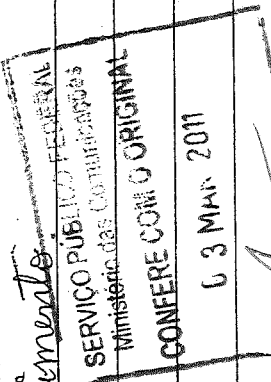 mento.
SERVIÇO PÚBLICO FEDERAL
Ministério das Comunicações
CONFERE COM O ORIGINAL
0 3 MAR 2011